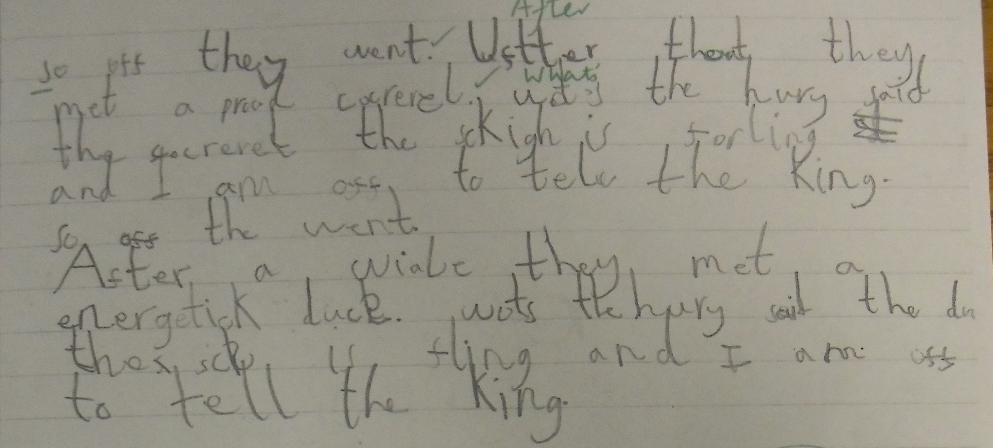 After
so off they went. Ustter thout they
What's
met a proud cocrerel. wots the hury said
the gocreret the skigh is forling
and I am off to tell the King.
so off the went.
After a wiale they met a
energetick duck. wots the hury said the du
thes scky is fling and I am off
to tell the King.